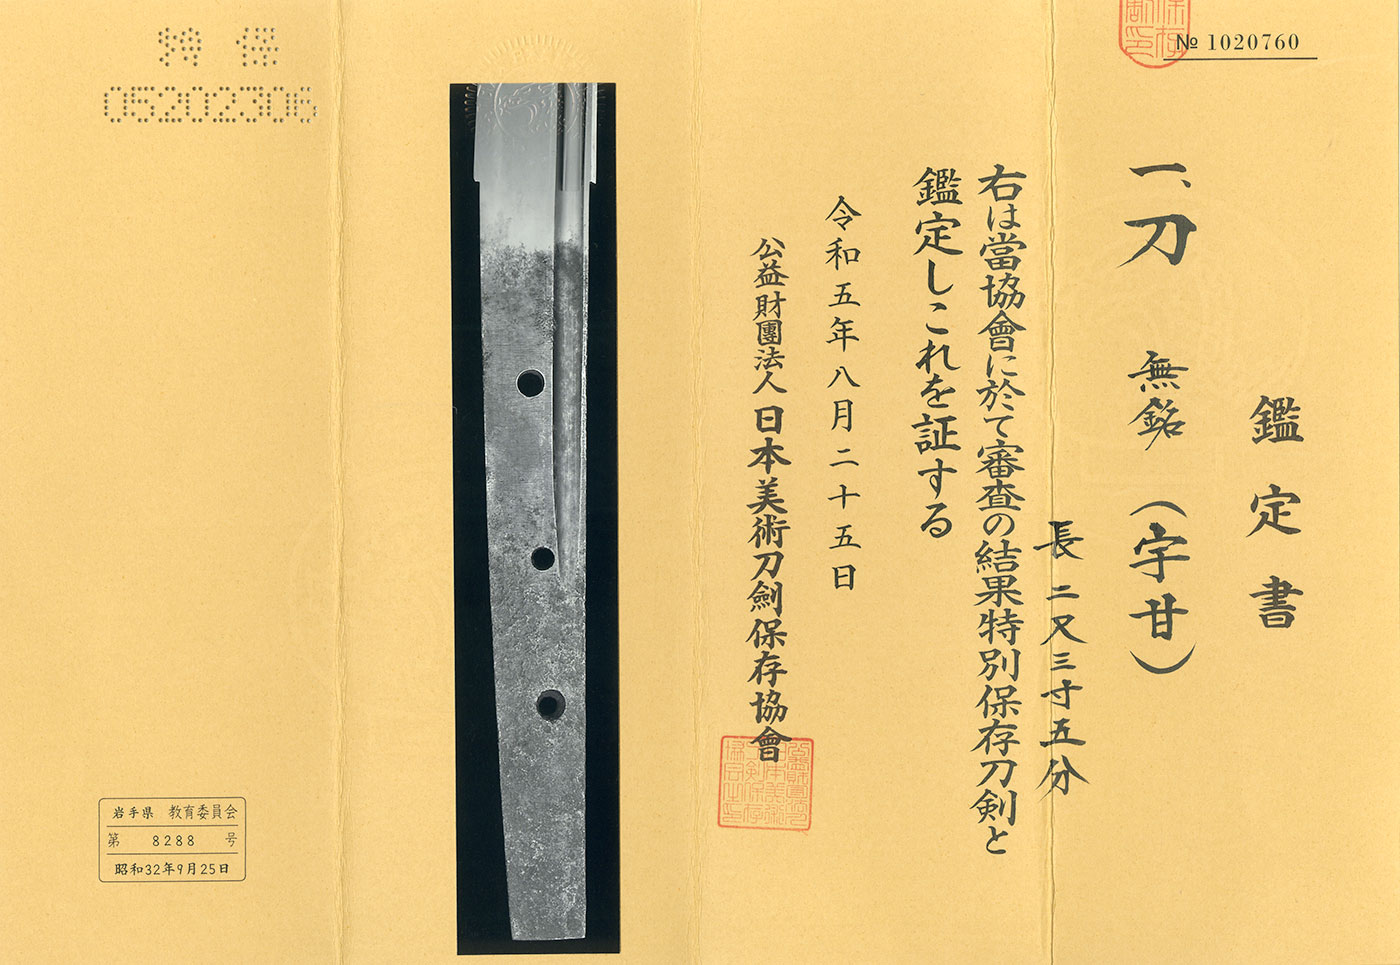 № 1020760
鑑定書
一、刀 無銘（宇甘）
長二尺三寸五分
右は當協會に於て審査の結果特別保存刀剣と
鑑定しこれを証する
令和五年八月二十五日
公益財團法人 日本美術刀劍保存協會
特保
05202306
岩手県 教育委員会
第 8288 号
昭和32年9月25日